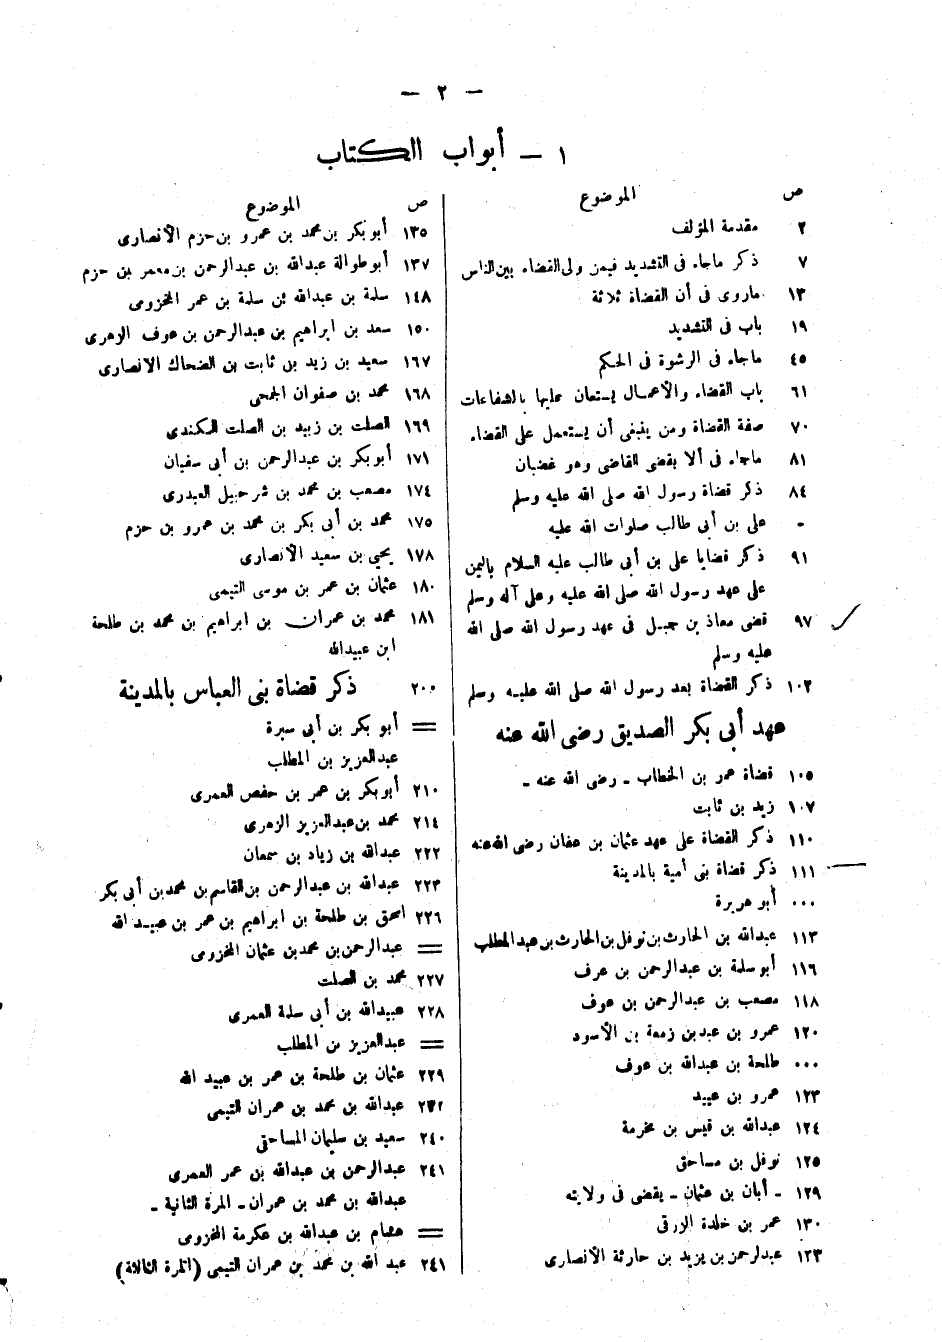 — ٢ —
١ — أبواب الكتاب
ص الموضوع
٢ مقدمة المؤلف
٧ ذكر ماجاء فى التشديد فيمن ولى القضاء بين الناس
١٣ ماروى فى أن القضاة ثلاثة
١٩ باب فى التشديد
٤٥ ماجاء فى الرشوة فى الحكم
٦١ باب القضاء والأعمال يستعان عليها بالشفاعات
٧٠ صفة القضاة ومن ينبغى أن يستعمل على القضاء
٨١ ماجاء فى ألا يقضى القاضى وهو غضبان
٨٤ ذكر قضاة رسول الله صلى الله عليه وسلم
- على بن أبى طالب صلوات الله عليه
٩١ ذكر قضايا على بن أبى طالب عليه السلام باليمن
على عهد رسول الله صلى الله عليه وعلى آله وسلم
٩٧ قضى معاذ بن جبل فى عهد رسول الله صلى الله
عليه وسلم
١٠٢ ذكر القضاة بعد رسول الله صلى الله عليه وسلم
عهد أبى بكر الصديق رضى الله عنه
١٠٥ قضاة عمر بن الخطاب ـ رضى الله عنه ـ
١٠٧ زيد بن ثابت
١١٠ ذكر القضاة على عهد عثمان بن عفان رضى الله عنه
١١١ ذكر قضاة بنى أمية بالمدينة
... أبو هريرة
١١٣ عبدالله بن الحارث بن نوفل بن الحارث بن عبد المطلب
١١٦ أبو سلمة بن عبدالرحمن بن عوف
١١٨ مصعب بن عبدالرحمن بن عوف
١٢٠ عمرو بن عبد بن زمعة بن الأسود
... طلحة بن عبدالله بن عوف
١٢٣ عمرو بن عبيد
١٢٤ عبدالله بن قيس بن مخرمة
١٢٥ نوفل بن مساحق
١٢٩ ـ أبان بن عثمان ـ يقضى فى ولايته
١٣٠ عمر بن خلدة الزرقى
١٢٣ عبدلرحمن بن يزيد بن حارثة الأنصارى
ص الموضوع
١٣٥ أبو بكر بن محمد بن عمرو بن حزم الأنصارى
١٣٧ أبو طوالة عبدالله بن عبدالرحمن بن معمر بن حزم
١٤٨ سلمة بن عبدالله بن سلمة بن عمر المخزومى
١٥٠ سعد بن ابراهيم بن عبدالرحمن بن عوف الزهرى
١٦٧ سعيد بن زيد بن ثابت بن الضحاك الأنصارى
١٦٨ محمد بن صفوان الجمحى
١٦٩ الصلت بن زبيد بن الصلت الكندى
١٧١ أبو بكر بن عبدالرحمن بن أبى سفيان
١٧٤ مصعب بن محمد بن شرحبيل العبدرى
١٧٥ محمد بن أبى بكر بن محمد بن عمرو بن حزم
١٧٨ يحيى بن سعيد الأنصارى
١٨٠ عثمان بن عمر بن موسى التيمى
١٨١ محمد بن عمران بن ابراهيم بن محمد بن طلحة
ابن عبيدالله
٢٠٠ ذكر قضاة بنى العباس بالمدينة
= أبو بكر بن أبى سبرة
عبدالعزيز بن المطلب
٢١٠ أبو بكر بن عمر بن حفص العمرى
٢١٤ محمد بن عبدالعزيز الزهرى
٢٢٢ عبدالله بن زياد بن سمعان
٢٢٣ عبدالله بن عبدالرحمن بن القاسم بن محمد بن أبى بكر
٢٢٦ اسحق بن طلحة بن ابراهيم بن عمر بن عبيد الله
= عبدالرحمن بن محمد بن عثمان المخزومى
٢٢٧ محمد بن الصلت
٢٢٨ عبيدالله بن أبى سلمة العمرى
= عبدالعزيز بن المطلب
٢٢٩ عثمان بن طلحة بن عمر بن عبيد الله
٢٣٢ عبدالله بن محمد بن عمران التيمى
٢٤٠ سعيد بن سليمان المساحقى
٢٤١ عبدالرحمن بن عبدالله بن عمر العمرى
عبدالله بن محمد بن عمران ـ المرة الثانية ـ
= هشام بن عبدالله بن عكرمة المخزومى
٢٤١ عبد الله بن محمد بن عمران التيمى (المرة الثالثة)